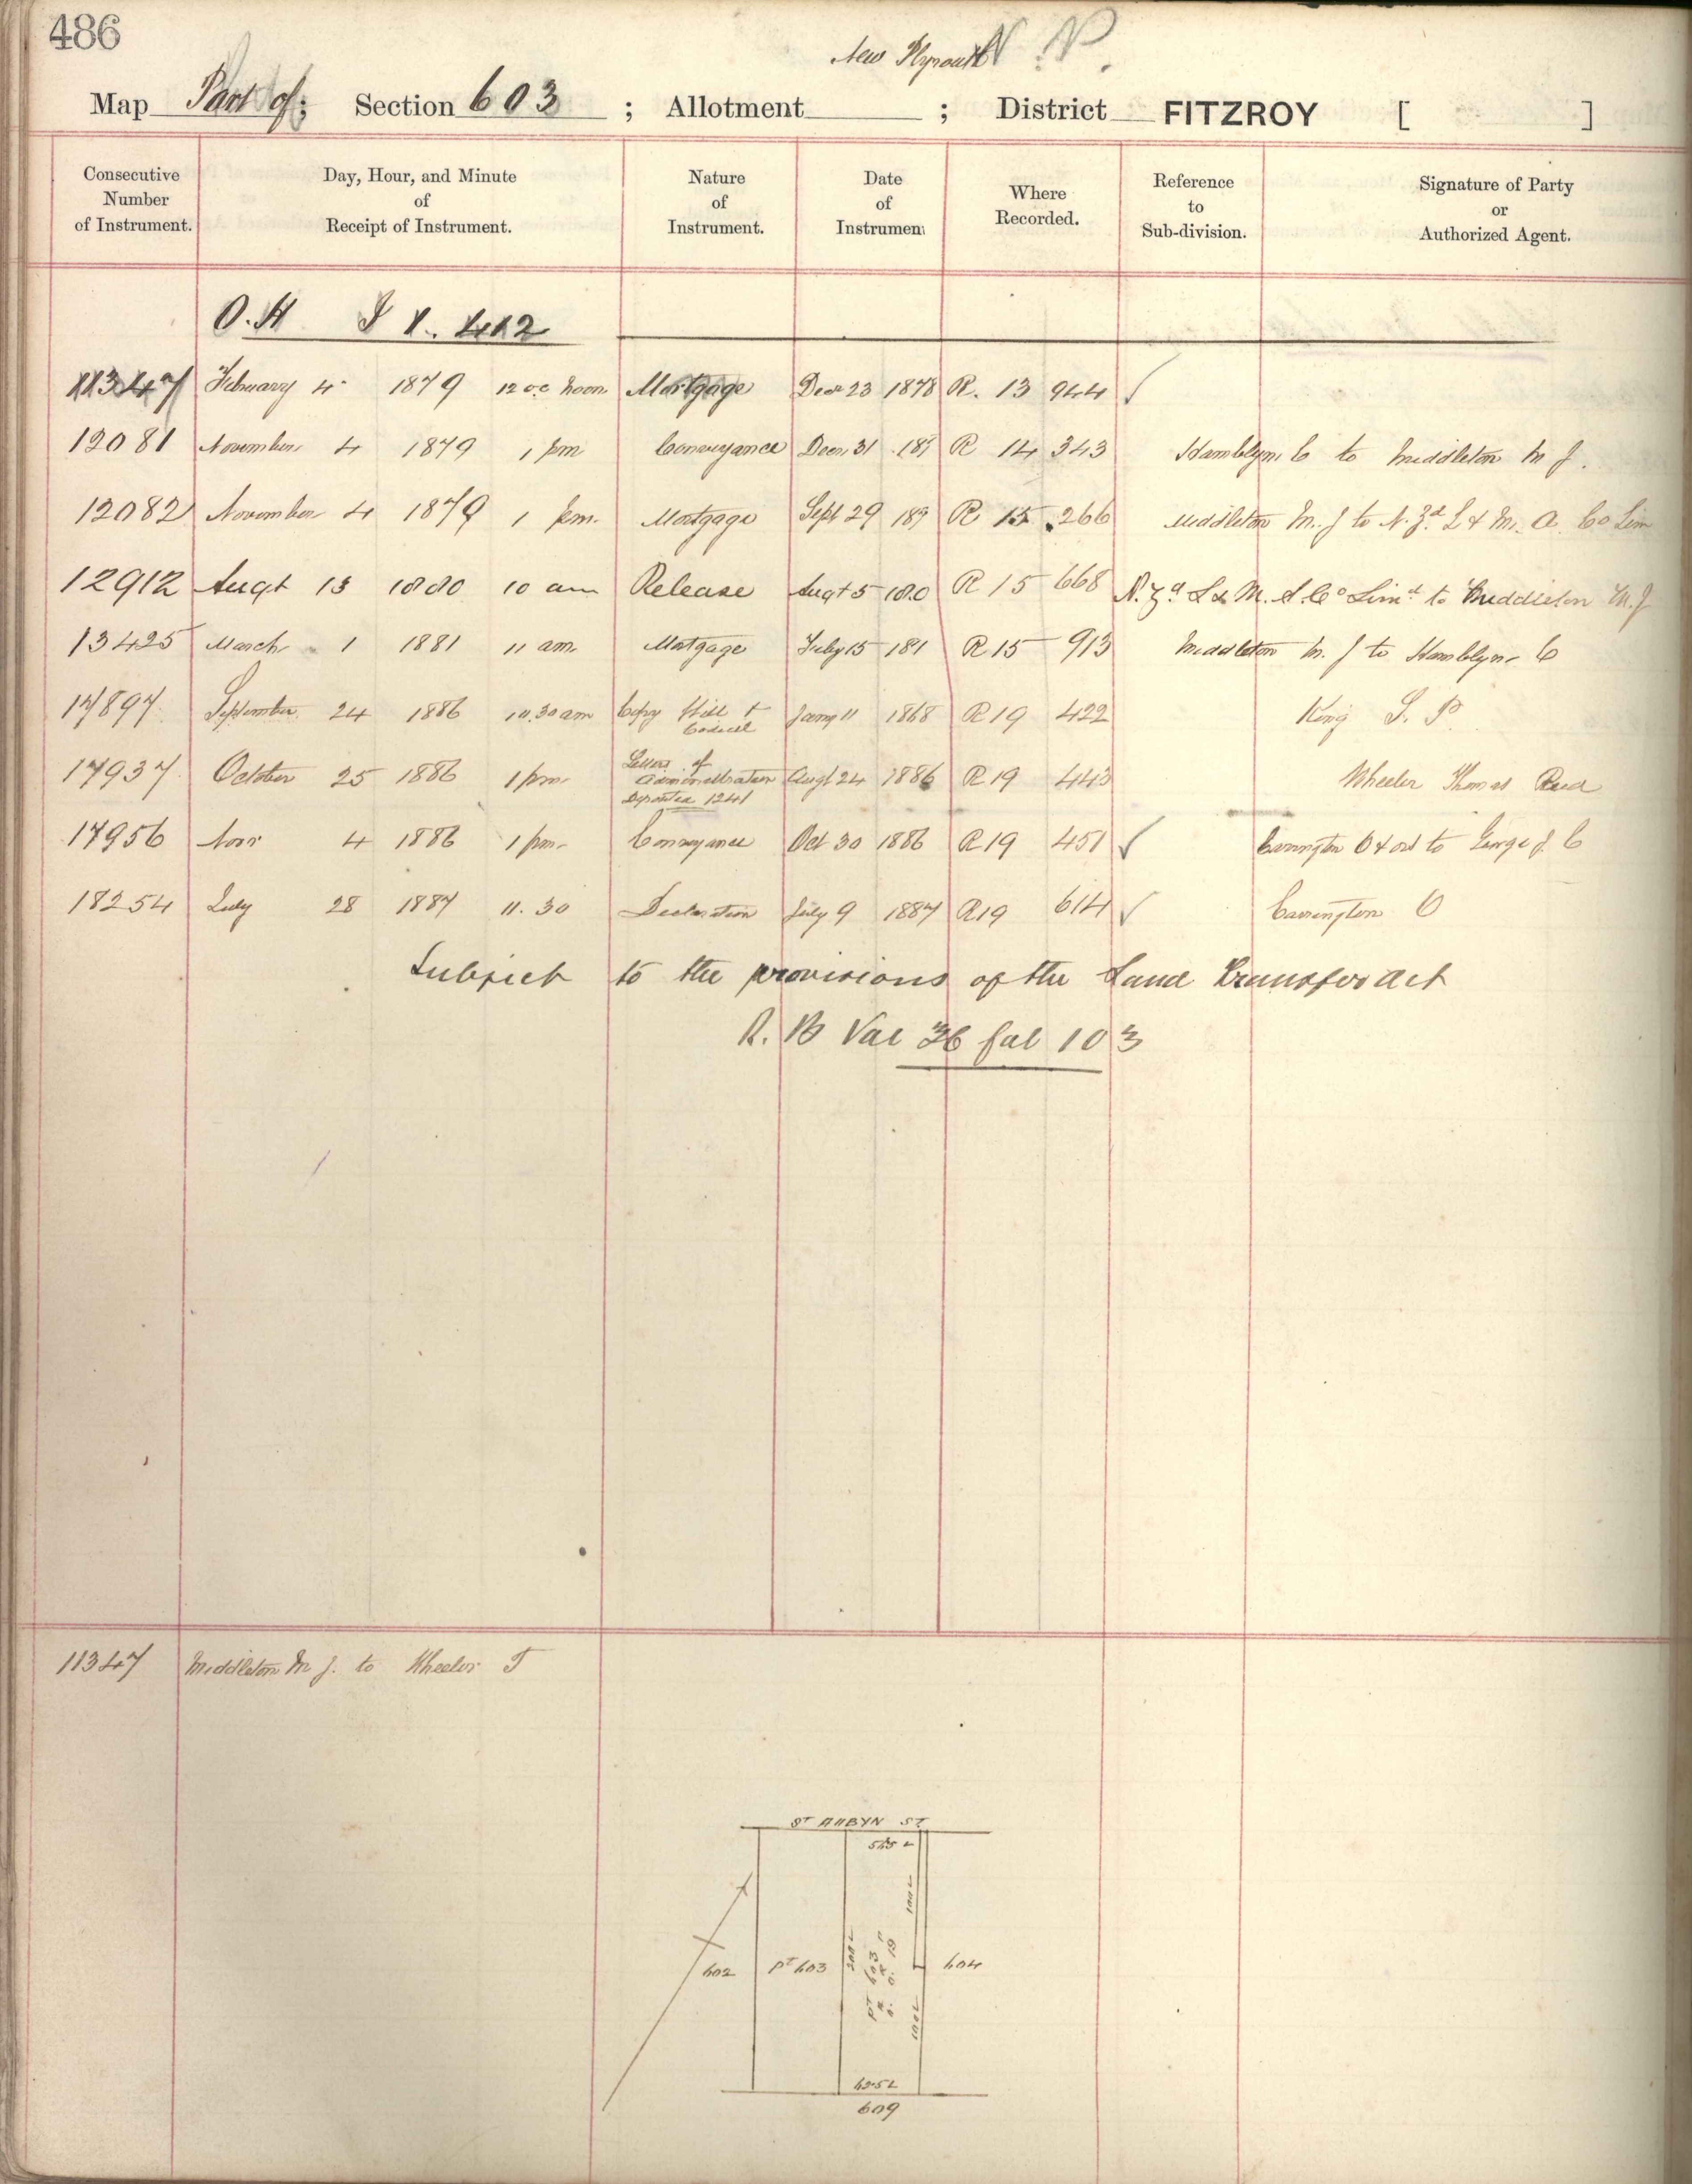 486
New Plymouth N. P.
Map Part of; Section 603 ; Allotment ; District FITZROY [ ]
Consecutive Number of Instrument. Day, Hour, and Minute of Receipt of Instrument. Nature of Instrument. Date of Instrumen Where Recorded. Reference to Sub-division. Signature of Party or Authorized Agent.
O.H I 412
11347 February 4 1879 12 oc noon Mortgage Decr 23 1878 R. 13 944 ✓
12081 November 4 1879 1 pm Conveyance Decr 31 187 R 14 343 Hamblyn C to Middleton M J.
12082 November 4 1879 1 pm. Mortgage Sept 29 189 R 15 266 Middleton M. J to N. Zd. L & M. A. Co Lim
12912 Augt 13 1880 10 am Release Augt 5 1880 R 15 668 N. Zd L & M. A. Co Limd to Middleton M. J
13425 March 1 1881 11 am Mortgage July 15 181 R 15 913 Middleton M. J to Hamblyn C
17897 September 24 1886 10.30 am Copy Will & Codicil Jany 11 1868 R 19 422 King S. P.
17937 October 25 1886 1 pm Letters of Administration Deposited 1241 Augt 24 1886 R 19 443 Wheeler Thomas
17956 Novr 4 1886 1 pm Conveyance Oct 30 1886 R 19 451 ✓ Carrington O & ors to George J. C
18254 July 28 1887 11. 30 Declaration July 9 1887 R 19 614 ✓ Carrington O
Subject to the provisions of the Land Transfer Act
R. B Vol 36 fol 103
11347 Middleton M J. to Wheeler T
ST AUBYN ST
100 L
200 L
602 PT 603 PT 603 604
100 L
609